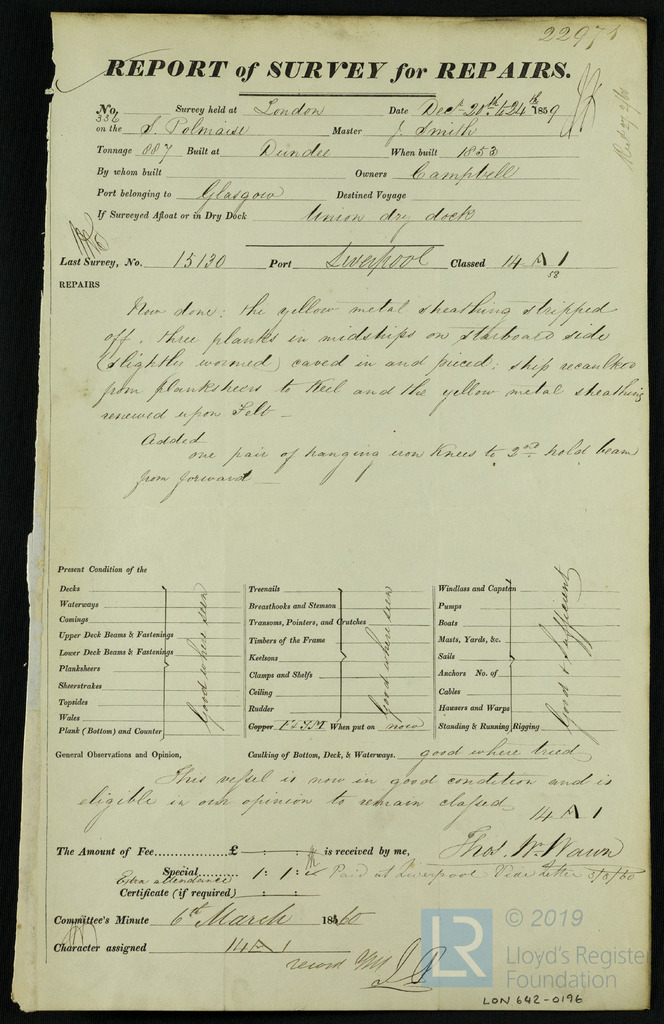 22971
REPORT of SURVEY for REPAIRS.
No. 336 Survey held at London Date Decr 20th to 24th 1859
on the S. Polmaise Master J. Smith
Tonnage 887 Built at Dundee When built 1853
By whom built Owners Campbell
Port belonging to Glasgow Destined Voyage
If Surveyed Afloat or in Dry Dock Union dry dock
Last Survey, No. 15130 Port Liverpool Classed 14 A 1
58
REPAIRS
Now done: the yellow metal sheathing stripped
off. three planks in midships on starboard side
(slightly wormed) caved in and pieced; ship recaulked
from planksheers to Keel and the yellow metal sheathing
renewed upon Felt
Added
one pair of hanging iron Knees to 2nd hold beam
from forward
Present Condition of the
Decks
Waterways
Comings
Upper Deck Beams & Fastenings
Lower Deck Beams & Fastenings
Planksheers
Sheerstrakes
Topsides
Wales
Plank (Bottom) and Counter
Good where seen
Treenails
Breasthooks and Stemson
Transoms, Pointers, and Crutches
Timbers of the Frame
Keelsons
Clamps and Shelfs
Ceiling
Rudder
Good where seen
Copper F&YM When put on now
Windlass and Capstan
Pumps
Boats
Masts, Yards, &c.
Sails
Anchors No. of
Cables
Hawsers and Warps
Standing & Running Rigging
Good & Sufficient
General Observations and Opinion, Caulking of Bottom, Deck, & Waterways. good where tried
This vessel is now in good condition and is
eligible in our opinion to remain classed 14 A 1
The Amount of Fee............£ - : - : is received by me, Thos. Wm Wawn
Special......... 1 : 1 : Paid at Liverpool Vide Letter 5/3/60
Extra attendance
Certificate (if required) - : - :
Committee's Minute 6th March 1860
Character assigned 14 A 1
record
LR
© 2019
Lloyd's Register
Foundation
LON 642-0196